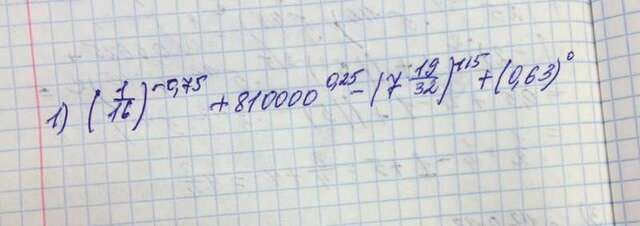 1) (1/16)^-0,75 + 810000^0,25 - (7 19/32)^1/5 + (0,63)^0